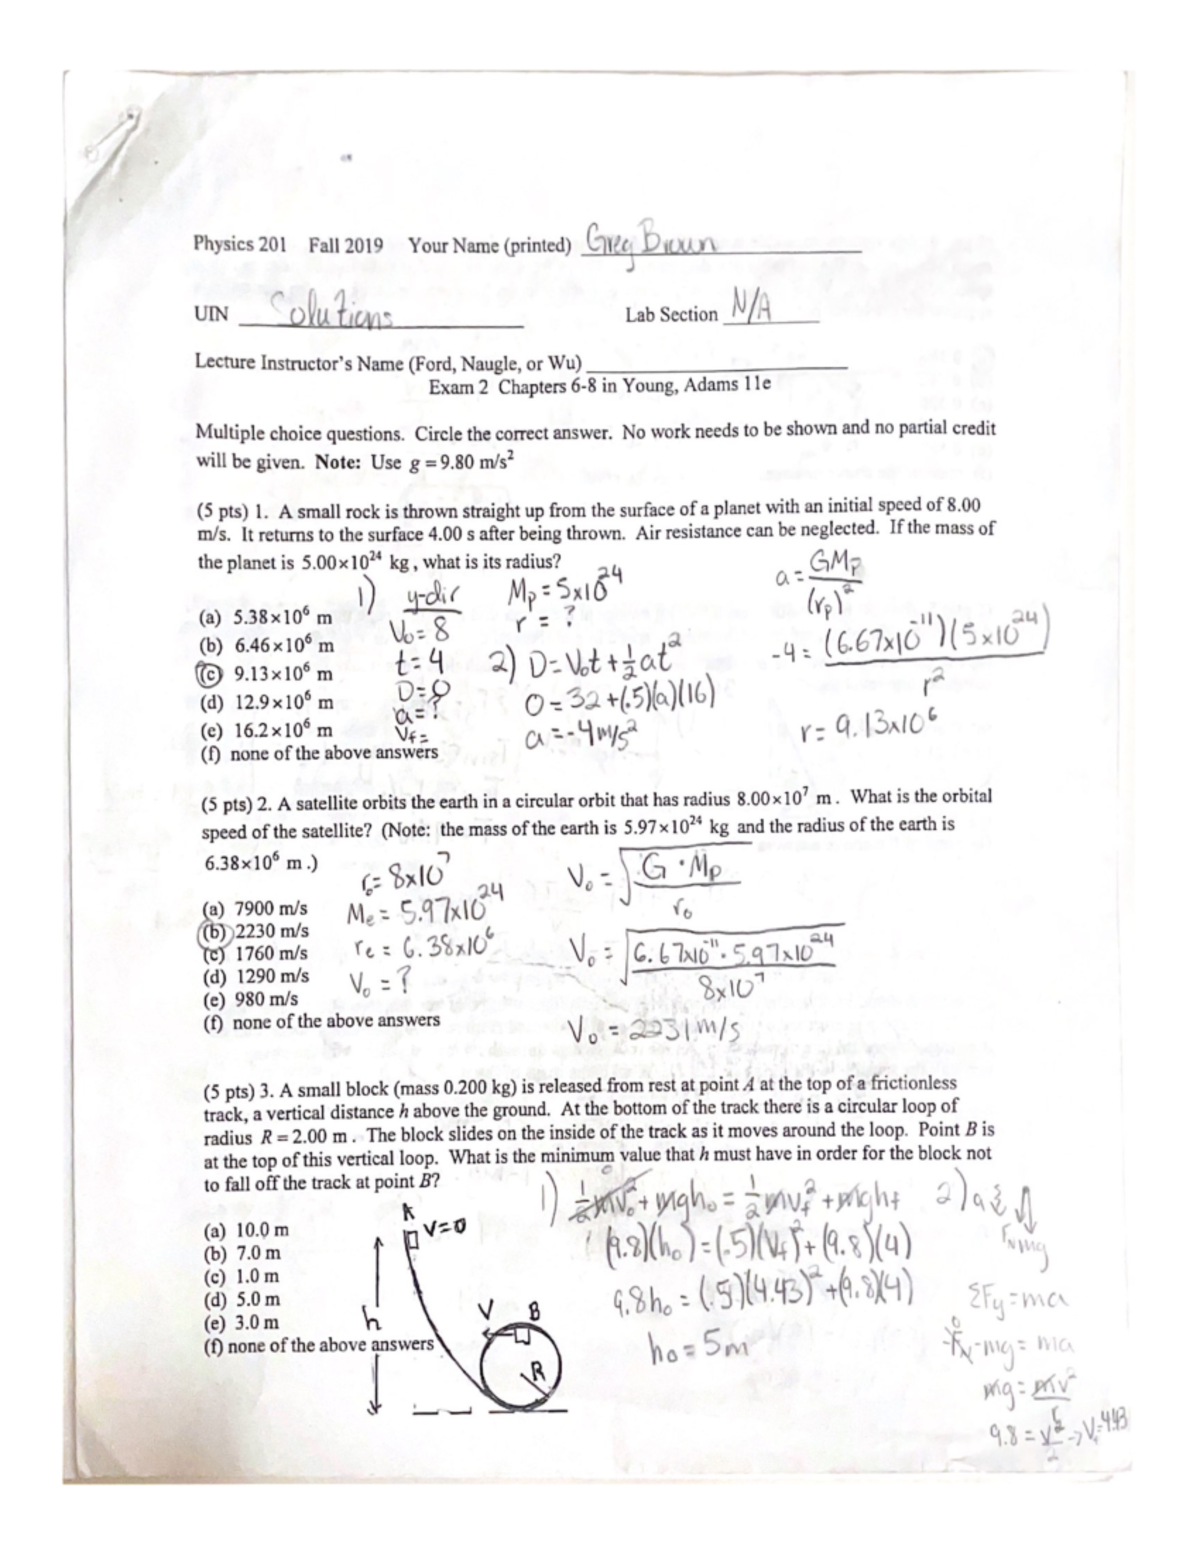 Physics 201 Fall 2019 Your Name (printed) Greg Brown
UIN Solutions Lab Section N/A
Lecture Instructor's Name (Ford, Naugle, or Wu)
Exam 2 Chapters 6-8 in Young, Adams 11e
Multiple choice questions. Circle the correct answer. No work needs to be shown and no partial credit
will be given. Note: Use g = 9.80 m/s²
(5 pts) 1. A small rock is thrown straight up from the surface of a planet with an initial speed of 8.00
m/s. It returns to the surface 4.00 s after being thrown. Air resistance can be neglected. If the mass of
the planet is 5.00×10²⁴ kg, what is its radius?
(a) 5.38×10⁶ m
(b) 6.46×10⁶ m
(c) 9.13×10⁶ m
(d) 12.9×10⁶ m
(e) 16.2×10⁶ m
(f) none of the above answers
1) y-dir
V₀= 8
t= 4
D=0
a=?
Vf=
Mp = 5x10²⁴
r = ?
2) D= V₀t + ½at²
0= 32 +(.5)(a)(16)
a = -4 m/s²
a= GMp
(rp)²
-4 = (6.67x10⁻¹¹)(5x10²⁴)
r²
r= 9.13x10⁶
(5 pts) 2. A satellite orbits the earth in a circular orbit that has radius 8.00×10⁷ m. What is the orbital
speed of the satellite? (Note: the mass of the earth is 5.97×10²⁴ kg and the radius of the earth is
6.38×10⁶ m.)
(a) 7900 m/s
(b) 2230 m/s
(c) 1760 m/s
(d) 1290 m/s
(e) 980 m/s
(f) none of the above answers
r₀= 8x10⁷
Me = 5.97x10²⁴
re = 6.38x10⁶
V₀ = ?
V₀ = √G · Mp
r₀
V₀ = √6.67x10⁻¹¹ · 5.97x10²⁴
8x10⁷
V₀ = 2231 m/s
(5 pts) 3. A small block (mass 0.200 kg) is released from rest at point A at the top of a frictionless
track, a vertical distance h above the ground. At the bottom of the track there is a circular loop of
radius R = 2.00 m. The block slides on the inside of the track as it moves around the loop. Point B is
at the top of this vertical loop. What is the minimum value that h must have in order for the block not
to fall off the track at point B?
(a) 10.0 m
(b) 7.0 m
(c) 1.0 m
(d) 5.0 m
(e) 3.0 m
(f) none of the above answers
A
V=0
h
V B
R
1) ½mv₀² + mgh₀ = ½mvf² + mghf
0
(9.8)(h₀) = (.5)(Vf)² + (9.8)(4)
9.8h₀ = (.5)(4.43)² + (9.8)(4)
h₀ = 5m
2)
mg
ΣFy = ma
0
-FN - mg = ma
mg = mv²
r
9.8 = v² → V= 4.43
2